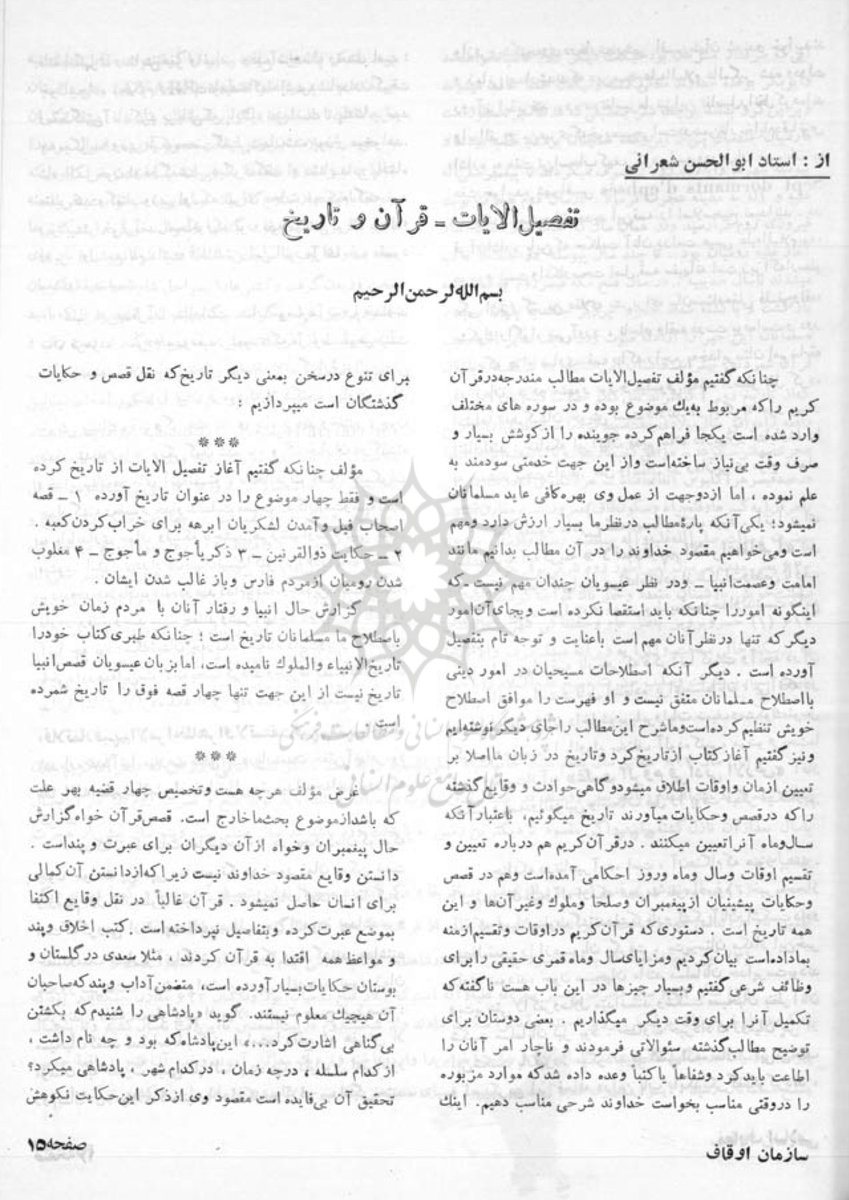 از : استاد ابوالحسن شعرانی
تفصیل‌الایات ـ قرآن و تاریخ
بسم‌الله‌لرحمن‌الرحیم
چنانکه گفتیم مؤلف تفصیل‌الایات مطالب مندرجه درقرآن
کریم را که مربوط به‌یك موضوع بوده و در سوره های مختلف
وارد شده است یکجا فراهم کرده جوینده را از کوشش بسیار و
صرف وقت بی‌نیاز ساخته‌است واز این جهت خدمتی سودمند به
علم نموده ، اما ازدوجهت از عمل وی بهره‌کافی عاید مسلمانان
نمیشود؛ یکی‌آنکه پارهٔ‌مطالب درنظرما بسیار ارزش دارد ومهم
است ومی‌خواهیم مقصود خداوند را در آن مطالب بدانیم مانند
امامت وعصمت‌انبیا ـ ودر نظر عیسویان چندان مهم نیست ـ که
اینگونه اموررا چنانکه باید استقصا نکرده است وبجای‌آن‌امور
دیگر که تنها درنظرآنان مهم است باعنایت و توجه تام بتفصیل
آورده است . دیگر آنکه اصطلاحات مسیحیان در امور دینی
بااصطلاح مسلمانان متفق نیست و او فهرست را موافق اصطلاح
خویش تنظیم کرده‌است‌وماشرح این‌مطالب راجای دیگر نوشته‌ایم
ونیز گفتیم آغاز کتاب ازتاریخ‌کرد وتاریخ در زبان مااصلا بر
تعیین ازمان واوقات اطلاق میشودوگاهی‌حوادث و وقایع‌گذشته
راکه درقصص وحکایات میآورند تاریخ میگوئیم، باعتبارآنکه
سال‌وماه آنراتعیین میکنند . درقرآن‌کریم هم درباره تعیین و
تقسیم اوقات وسال وماه وروز احکامی آمده‌است وهم در قصص
وحکایات پیشینیان ازپیغمبران وصلحا وملوك وغیرآن‌ها و این
همه تاریخ است . دستوری که قرآن‌کریم دراوقات وتقسیم‌ازمنه
بماداده‌است بیان‌کردیم ومزایای‌سال وماه‌قمری حقیقی رابرای
وظائف شرعی گفتیم وبسیار چیزها در این باب هست ناگفته‌که
تکمیل آنرا برای وقت دیگر میگذاریم . بعضی دوستان برای
توضیح مطالب‌گذشته سئوالاتی فرمودند و ناچار امر آنان را
اطاعت بایدکرد وشفاهاً یاکتباً وعده داده شدکه موارد مزبوره
را دروقتی مناسب بخواست خداوند شرحی مناسب دهیم. اینك
برای تنوع درسخن بمعنی دیگر تاریخ‌که نقل قصص و حکایات
گذشتگان است میپردازیم :
***
مؤلف چنانکه گفتیم آغاز تفصیل الایات از تاریخ کرده
است و فقط چهار موضوع را در عنوان تاریخ آورده ۱ ـ قصه
اصحاب فیل وآمدن لشکریان ابرهه برای خراب‌کردن‌کعبه .
۲ ـ حکایت ذوالقرنین ـ ۳ ذکریأجوج و مأجوج ـ ۴ مغلوب
شدن رومیان ازمردم فارس وباز غالب شدن ایشان .
گزارش حال انبیا و رفتار آنان با مردم زمان خویش
باصطلاح ما مسلمانان تاریخ است ؛ چنانکه طبری‌کتاب خودرا
تاریخ‌الانبیاء والملوك نامیده است، اما بزبان عیسویان قصص‌انبیا
تاریخ نیست از این جهت تنها چهار قصه فوق را تاریخ شمرده
است .
***
غرض مؤلف هرچه هست وتخصیص چهار قضیه بهر علت
که باشدازموضوع بحث‌ماخارج است. قصص‌قرآن خواه‌گزارش
حال پیغمبران وخواه ازآن دیگران برای عبرت و پنداست .
دانستن وقایع مقصود خداوند نیست زیراکه‌ازدانستن آن‌کمالی
برای انسان حاصل نمیشود . قرآن غالباً در نقل وقایع اکتفا
بموضع عبرت‌کرده وبتفاصیل نپرداخته است . کتب اخلاق وپند
و مواعظ‌همه اقتدا به قرآن کردند ، مثلا سعدی درگلستان و
بوستان حکایات‌بسیارآورده است، متضمن‌آداب وپندکه‌صاحبان
آن هیچیك معلوم نیستند. گوید «پادشاهی را شنیدم‌که بکشتن
بی‌گناهی اشارت‌کرد...» این‌پادشاه‌که بود و چه نام داشت ،
ازکدام سلسله ، درچه زمان ، درکدام شهر ، پادشاهی میکرد؟
تحقیق آن بی‌فایده است مقصود وی ازذکر این‌حکایت نکوهش
سازمان اوقاف
صفحه۱۵